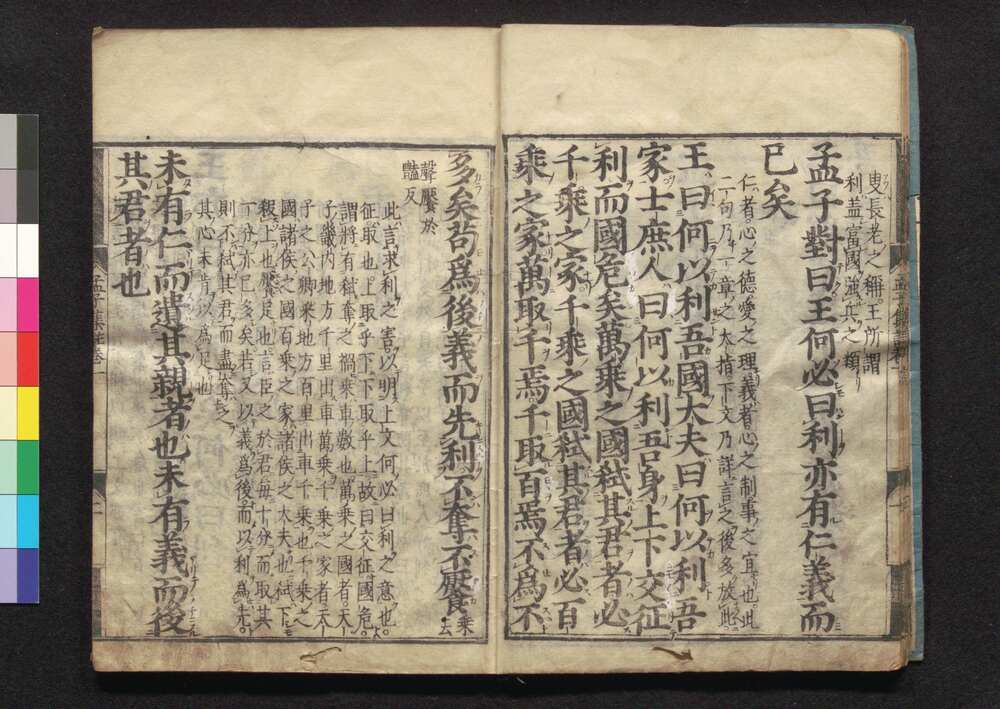 叟長老之稱王所謂
利蓋富國彊兵之類
孟子對曰王何必曰利亦有仁義而
已矣
仁者心之德愛之理義者心之制事之宜也此
二句乃一章之大指下文乃詳言之後多放此
王曰何以利吾國大夫曰何以利吾
家士庶人曰何以利吾身上下交征
利而國危矣萬乘之國弑其君者必
千乘之家千乘之國弑其君者必百
乘之家萬取千焉千取百焉不爲不
多矣苟爲後義而先利不奪不饜乘去
聲饜於
豔反
此言求利之害以明上文何必曰利之意也
征取也上取乎下下取乎上故曰交征國危
謂將有弑奪之禍乘車數也萬乘之國者天
子畿內地方千里出車萬乘千乘之家者天
子之公卿采地方百里出車千乘也千乘之
國諸侯之國百乘之家諸侯之大夫也弑下
殺上也饜足也言臣之於君每十分而取其
一分亦已多矣若又以義爲後而以利爲先
則不弑其君而盡奪之
其心未肯以爲足也
未有仁而遺其親者也未有義而後
其君者也
孟子集註卷一